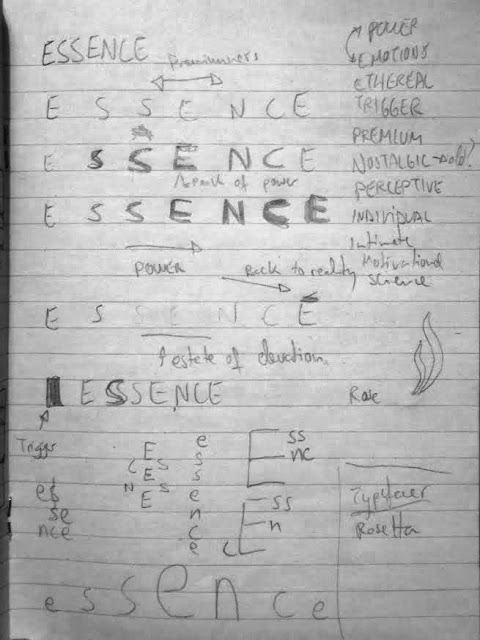 ESSENCE
Prominence
E S S E N C E
E S S E N C E
A peak of power
E S S E N C E
POWER
Back to reality
E S S E N C E
A state of elevation
ESSENCE
Trigger
es
se
nce
E
C E S
E S
N E S
E
e
s
s
e
n
c
e
E ss
nc
E ss
n
c
e s s e n c e
POWER
EMOTIONS
ETHEREAL
TRIGGER
PREMIUM
NOSTALGIC → old?
PERCEPTIVE
INDIVIDUAL
Intimate
Motivational
science
Rose
Typifaces
Rosetta